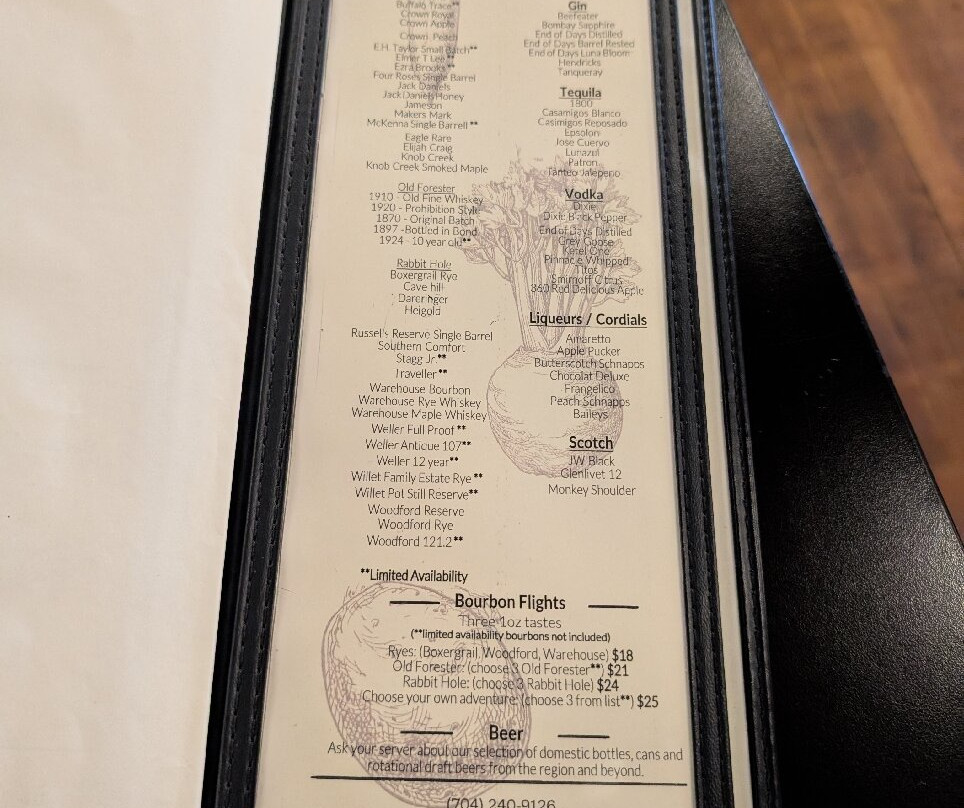 Buffalo Trace**
Crown Royal
Crown Apple
Crown Peach
E.H. Taylor Small Batch**
Elmer T Lee**
Ezra Brooks**
Four Roses Single Barrel
Jack Daniels
Jack Daniels Honey
Jameson
Makers Mark
McKenna Single Barrell **
Eagle Rare
Elijah Craig
Knob Creek
Knob Creek Smoked Maple
Old Forester
1910 - Old Fine Whiskey
1920 - Prohibition Style
1870 - Original Batch
1897 -Bottled in Bond
1924 - 10 year old**
Rabbit Hole
Boxergrail Rye
Cave hill
Dareringer
Heigold
Russel's Reserve Single Barrel
Southern Comfort
Stagg Jr**
Traveller**
Warehouse Bourbon
Warehouse Rye Whiskey
Warehouse Maple Whiskey
Weller Full Proof **
Weller Antique 107**
Weller 12 year**
Willet Family Estate Rye **
Willet Pot Still Reserve**
Woodford Reserve
Woodford Rye
Woodford 121.2**
Gin
Beefeater
Bombay Sapphire
End of Days Distilled
End of Days Barrel Rested
End of Days Luna Bloom
Hendricks
Tanqueray
Tequila
1800
Casamigos Blanco
Casimigos Reposado
Epsolon
Jose Cuervo
Lunazul
Patron
Tanteo Jalepeno
Vodka
Dixie
Dixie Black Pepper
End of Days Distilled
Grey Goose
Ketel One
Pinnacle Whipped
Titos
Smirnoff Citrus
360 Red Delicious Apple
Liqueurs / Cordials
Amaretto
Apple Pucker
Butterscotch Schnapps
Chocolat Deluxe
Frangelico
Peach Schnapps
Baileys
Scotch
JW Black
Glenlivet 12
Monkey Shoulder
**Limited Availability
Bourbon Flights
Three 1oz tastes
(**limited availability bourbons not included)
Ryes: (Boxergrail, Woodford, Warehouse) $18
Old Forester: (choose 3 Old Forester**) $21
Rabbit Hole: (choose 3 Rabbit Hole) $24
Choose your own adventure: (choose 3 from list**) $25
Beer
Ask your server about our selection of domestic bottles, cans and
rotational draft beers from the region and beyond.
(704) 240-9126